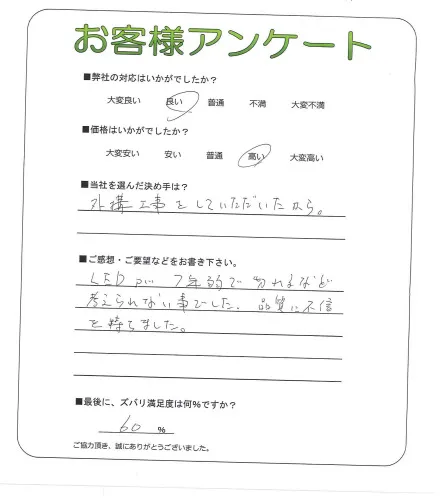 お客様アンケート
■弊社の対応はいかがでしたか?
大変良い 良い 普通 不満 大変不満
■価格はいかがでしたか?
大変安い 安い 普通 高い 大変高い
■当社を選んだ決め手は?
外構工事をしていただいたから。
■ご感想・ご要望などをお書き下さい。
LEDが7年弱で切れるなど
考えられない事でした。品質に不信
を持ちました。
■最後に、ズバリ満足度は何%ですか?
60 %
ご協力頂き、誠にありがとうございました。